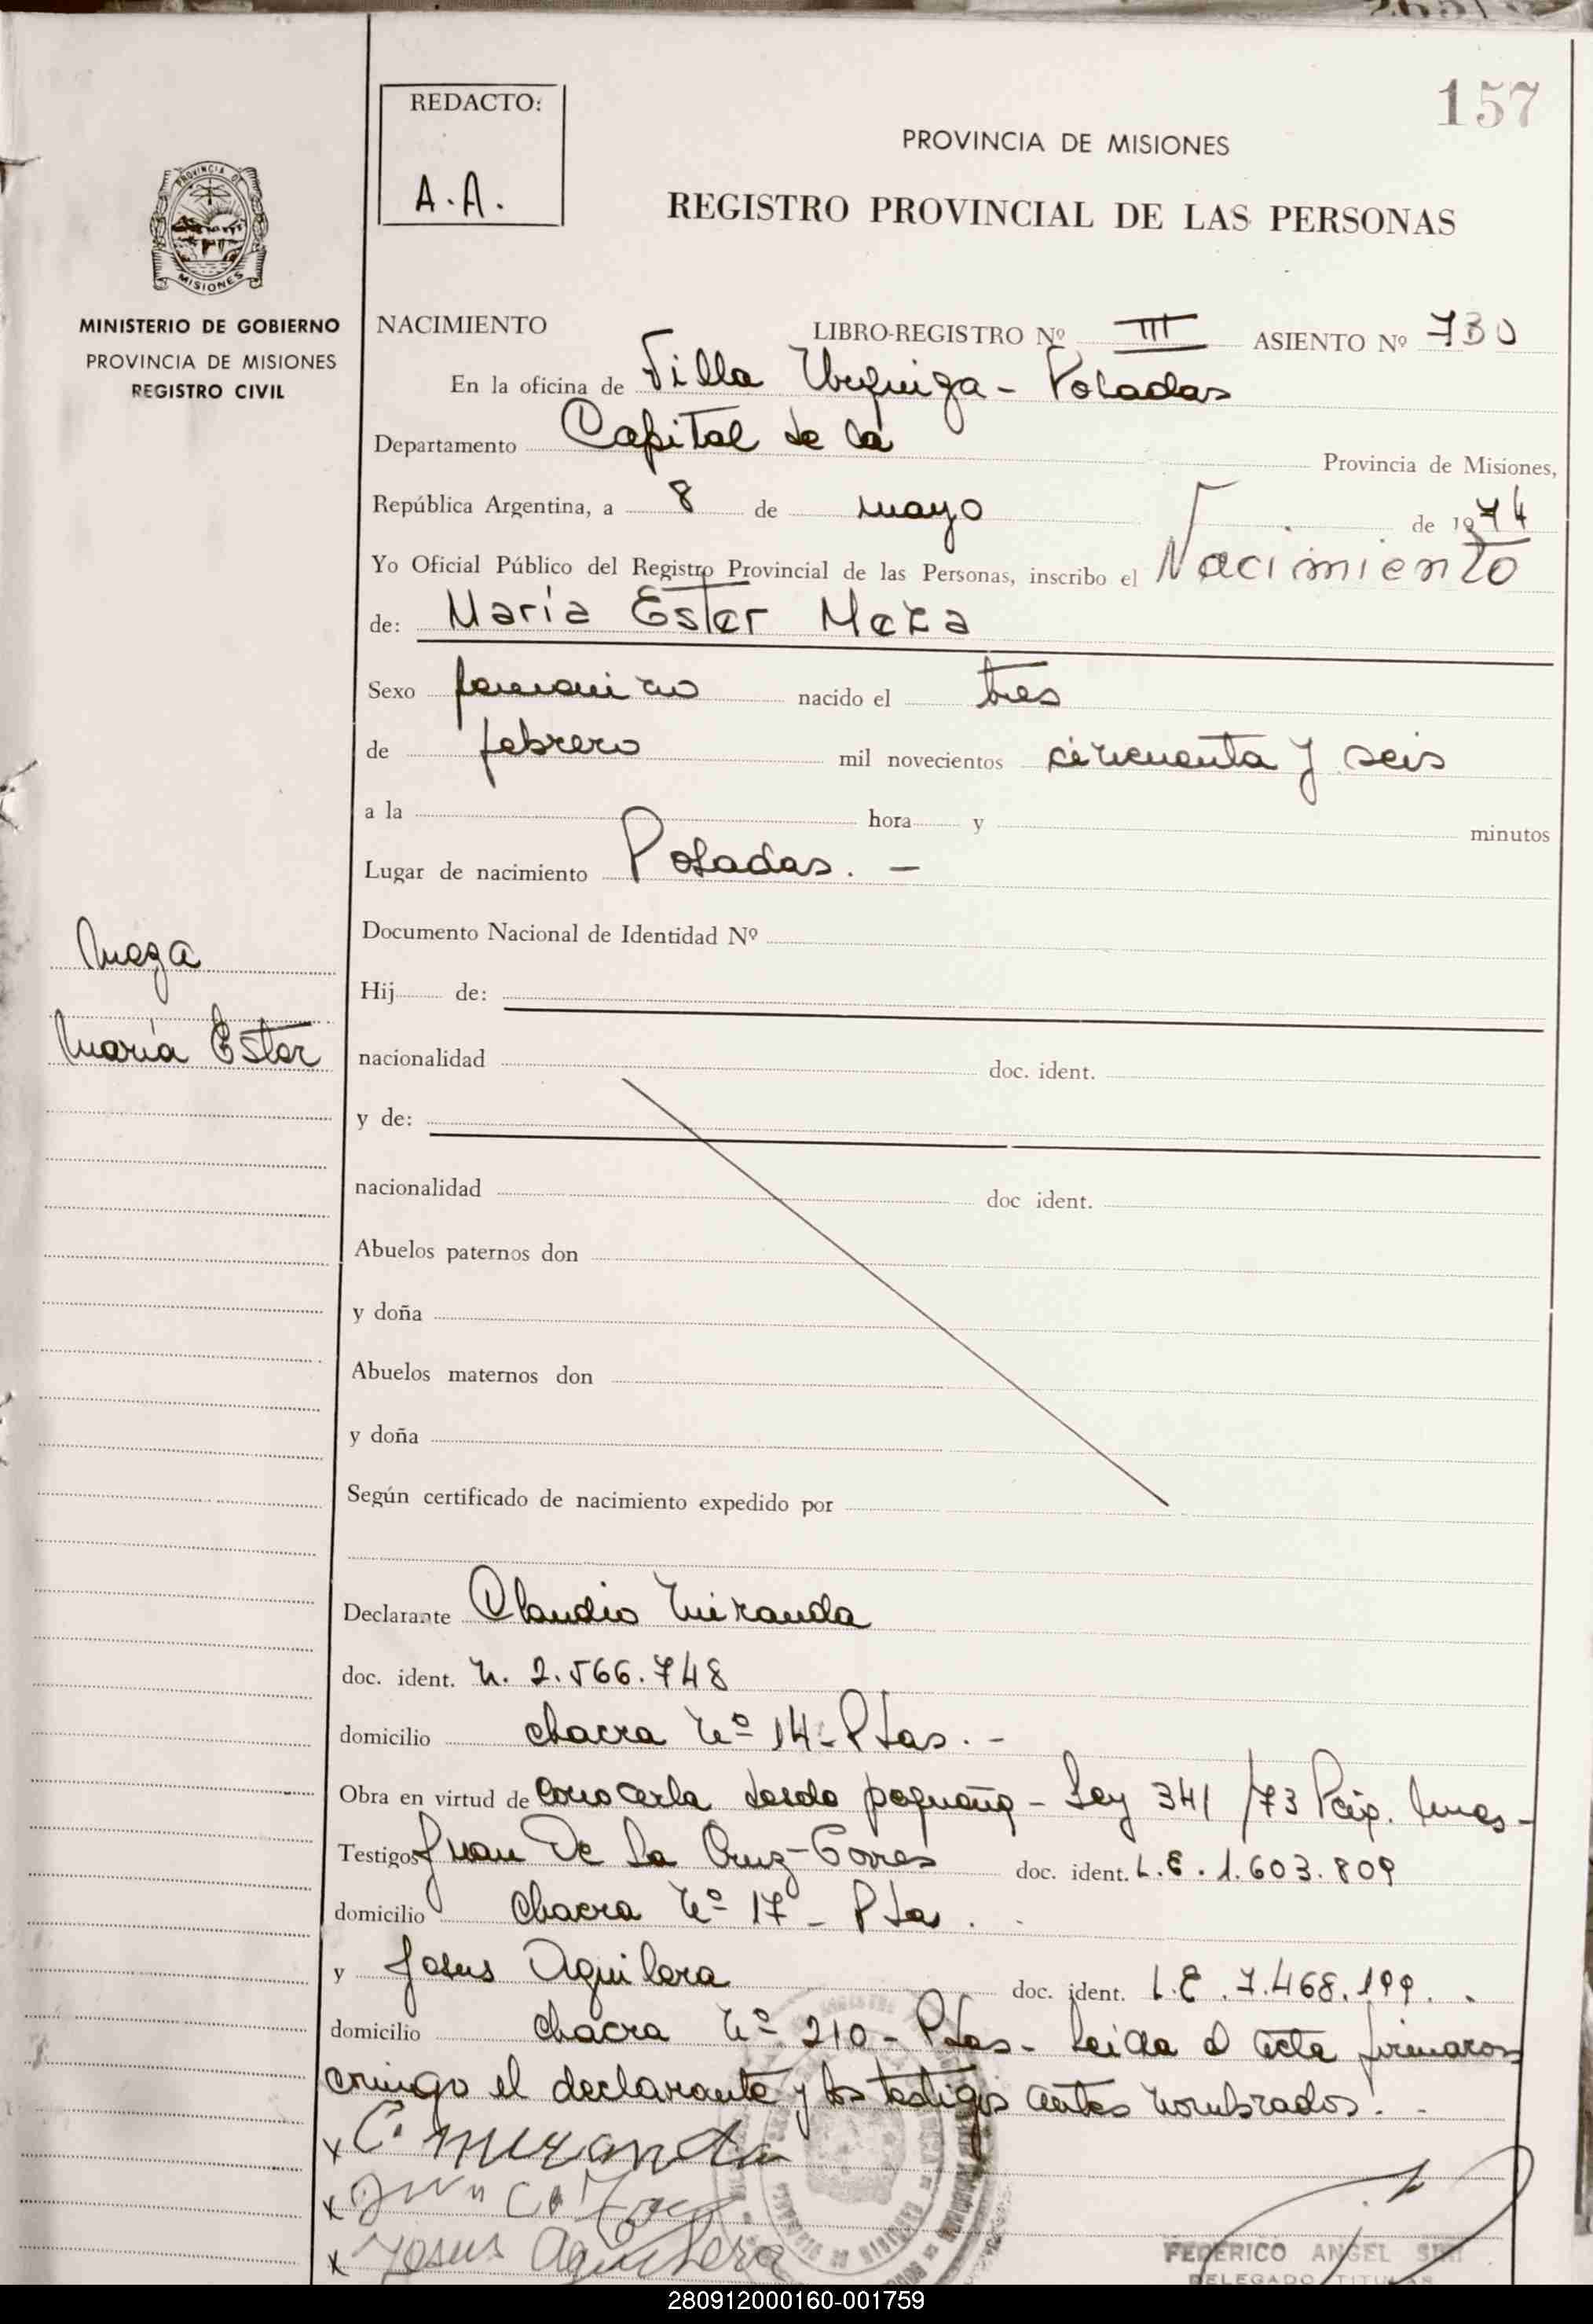 157
REDACTO:
A.A.
PROVINCIA DE MISIONES
REGISTRO PROVINCIAL DE LAS PERSONAS
PROVINCIA DE
MISIONES
MINISTERIO DE GOBIERNO
PROVINCIA DE MISIONES
REGISTRO CIVIL
NACIMIENTO LIBRO-REGISTRO Nº III ASIENTO Nº 730
En la oficina de Villa Urquiza - Posadas
Departamento Capital de la Provincia de Misiones,
República Argentina, a 8 de mayo de 1974
Yo Oficial Público del Registro Provincial de las Personas, inscribo el Nacimiento
de: María Ester Meza
Sexo femenino nacido el tres
de febrero mil novecientos cincuenta y seis
a la hora y minutos
Lugar de nacimiento Posadas. -
Documento Nacional de Identidad Nº
Meza
María Ester
Hij de:
nacionalidad doc. ident.
y de:
nacionalidad doc ident.
Abuelos paternos don
y doña
Abuelos maternos don
y doña
Según certificado de nacimiento expedido por
Declarante Claudio Miranda
doc. ident. M. 2.566.748
domicilio chacra Nº 14 - Pdas. -
Obra en virtud de conocerla desde pequeña - Ley 341/73
Testigos Juan De La Cruz Torres doc. ident. L.E. 1.603.809
domicilio Chacra Nº 17 - Pdas.
y Jesus Aguilera doc. ident. L.E. 7.468.199.
domicilio chacra Nº 210 - Pdas - Leida el acta firmaron
conmigo el declarante y los testigos antes nombrados. -
x C. miranda
x Juan C.
x Jesus Aguilera
FEDERICO ANGEL
DELEGADO TITULAR
280912000160-001759